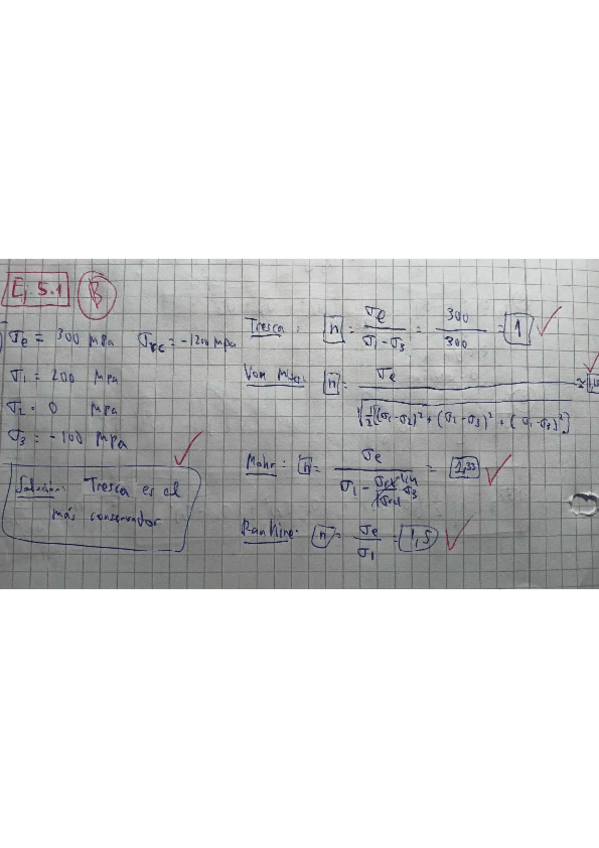 Ej 5.1 B
σe = 300 MPa σrc = -1200 MPa
σ1 = 200 MPa
σ2 = 0 MPa
σ3 = -100 MPa
Solución: Tresca es el
más conservador
Tresca: n = σe / (σ1 - σ3) = 300 / 300 = 1
Von Mises: n = σe / √(1/2[(σ1-σ2)² + (σ2-σ3)² + (σ1-σ3)²]) ≈
Mohr: n = σe / (σ1 - σ3) = 1,33
Rankine: n = σe / σ1 = 1,5